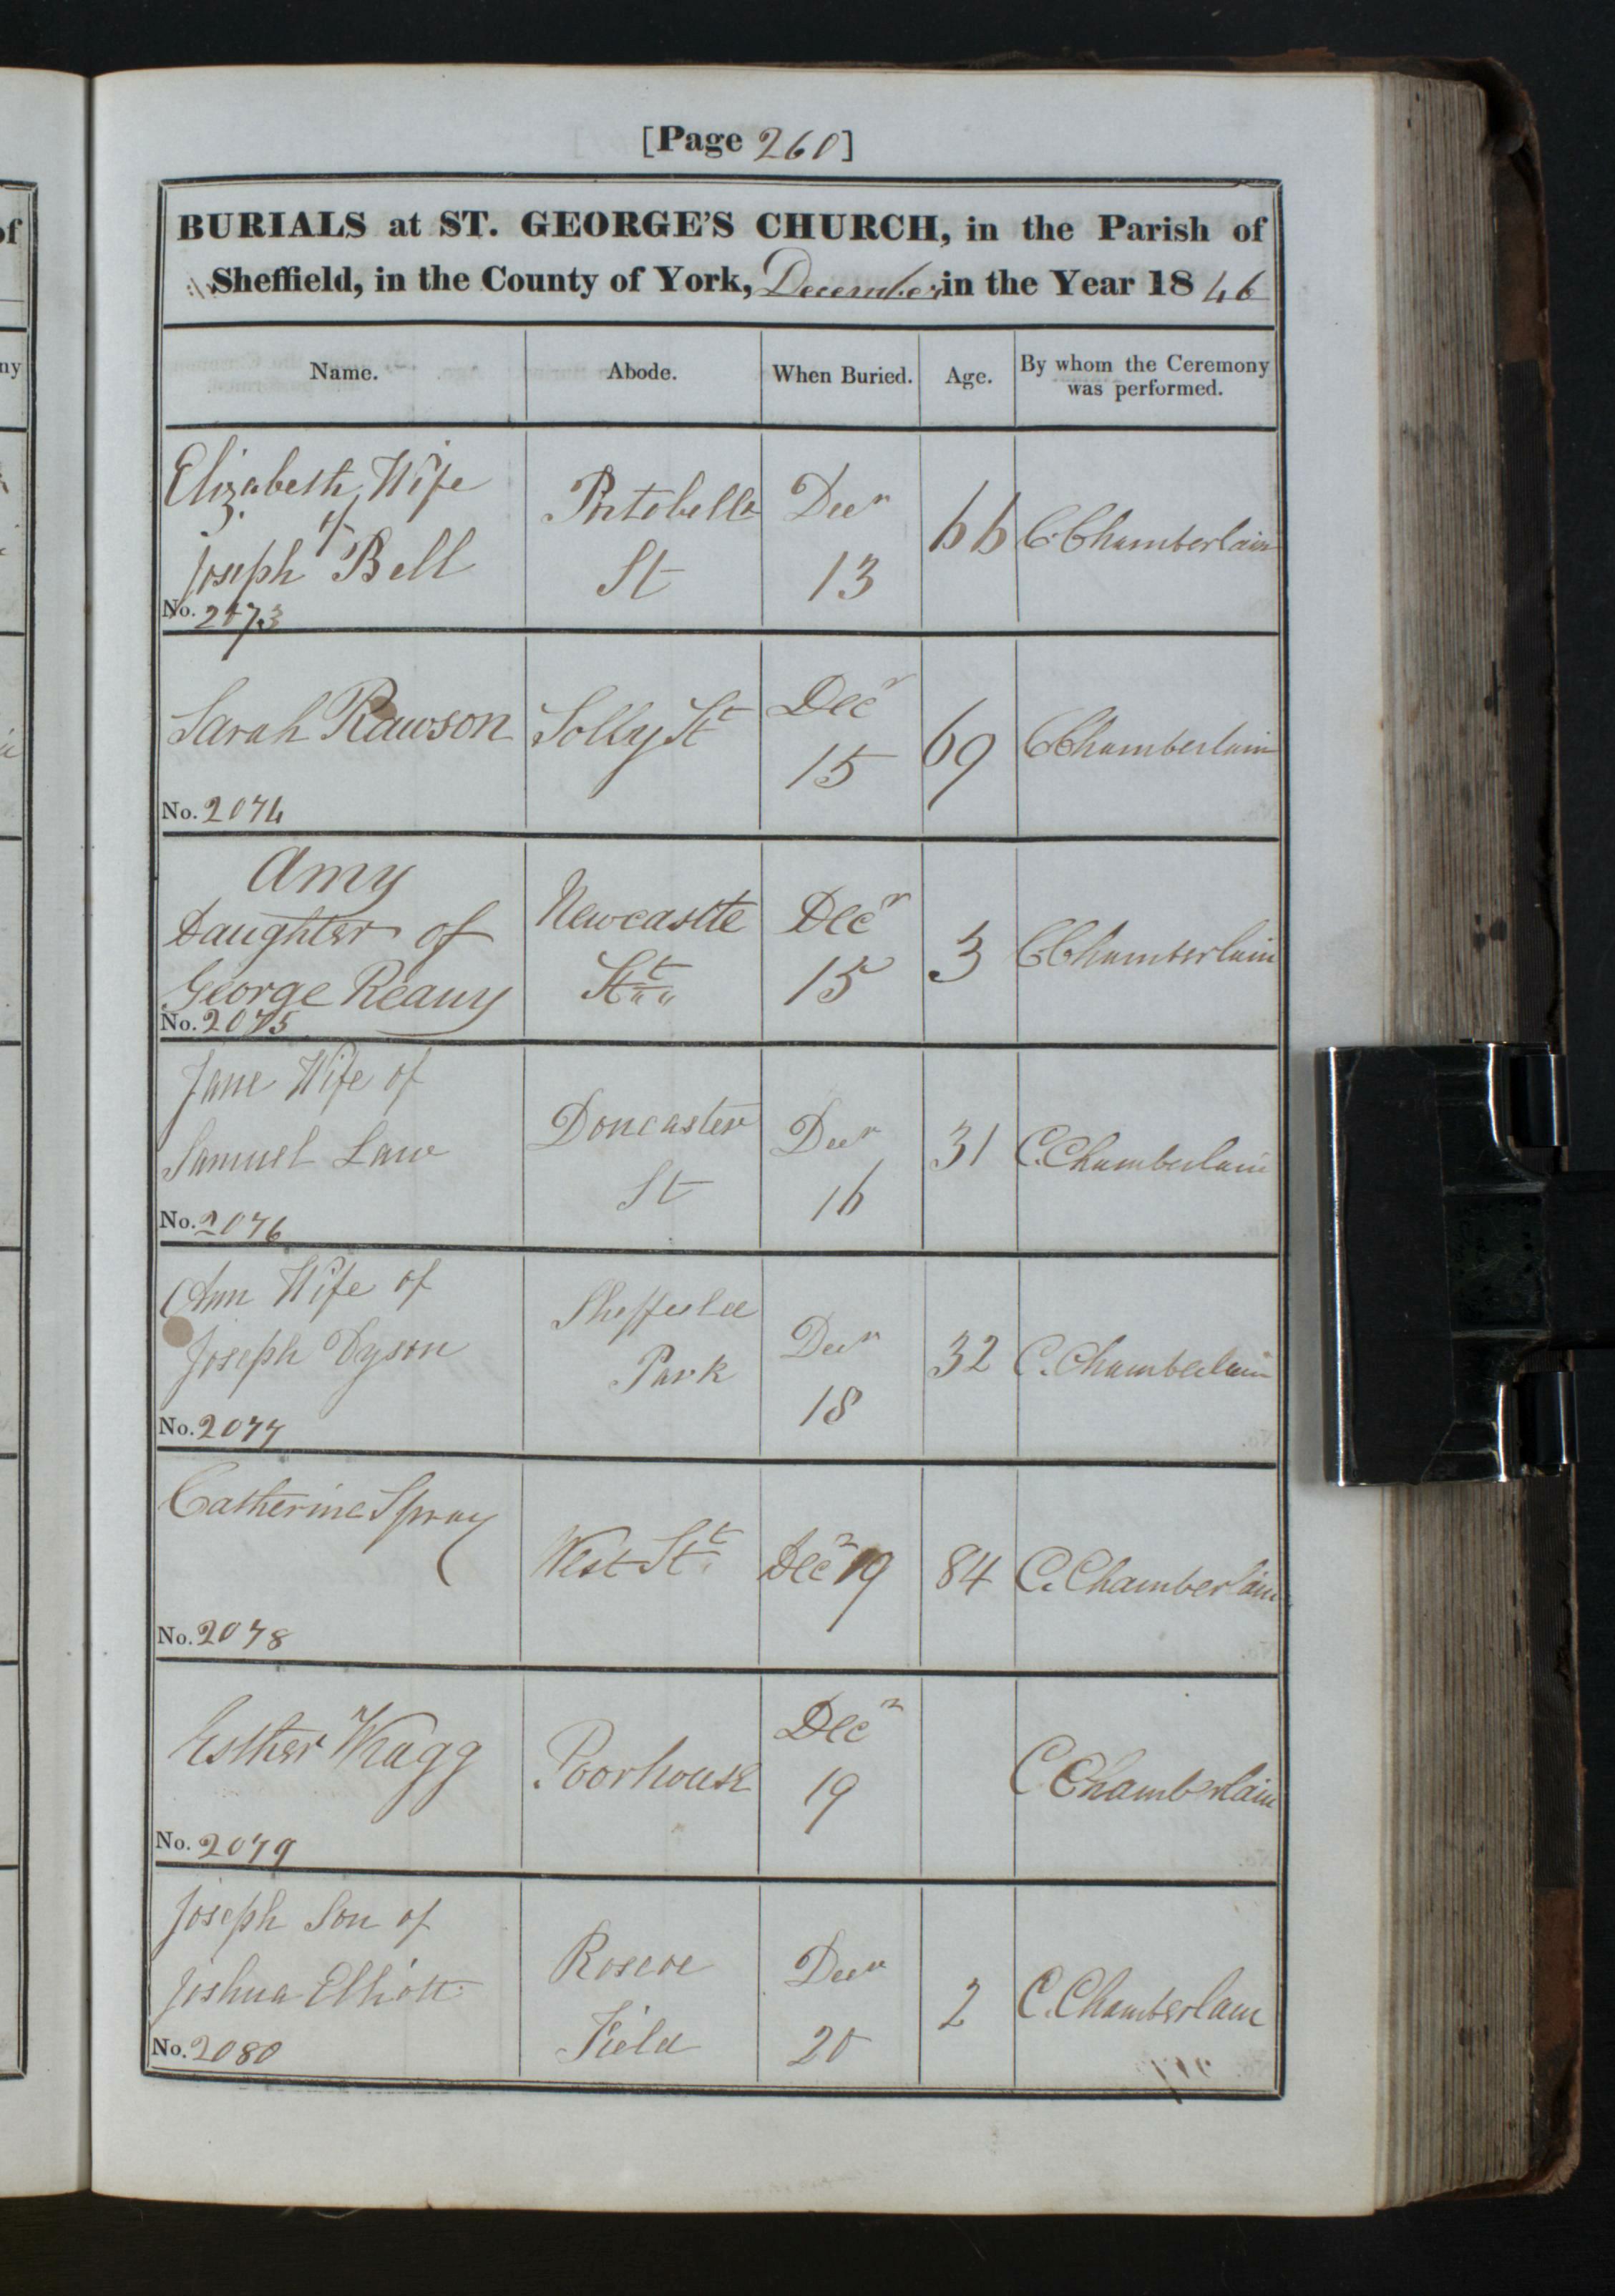 [Page 260]
BURIALS at ST. GEORGE'S CHURCH, in the Parish of
Sheffield, in the County of York, December in the Year 1846
Name. Abode. When Buried. Age. By whom the Ceremony was performed.
Elizabeth Wife of Joseph Bell Portobello St Decr 13 66 C Chamberlain
No. 2073
Sarah Rawson Solly St Decr 15 69 C Chamberlain
No. 2074
Amy Daughter of George Reany Newcastle St Decr 15 3 C Chamberlain
No. 2075
Jane Wife of Samuel Law Doncaster St Decr 16 31 C. Chamberlain
No. 2076
Ann Wife of Joseph Dyson Sheffield Park Decr 18 32 C. Chamberlain
No. 2077
Catherine Spray West St Decr 19 84 C. Chamberlain
No. 2078
Esther Wragg Poorhouse Decr 19 C Chamberlain
No. 2079
Joseph Son of Joshua Elliott Roscoe Field Decr 20 2 C. Chamberlain
No. 2080